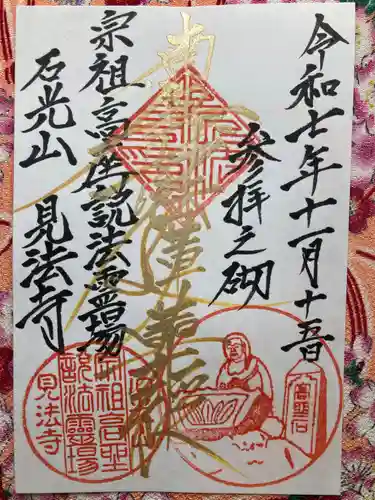 令和七年十一月十五日
参拝之砌
南無妙法蓮華経
宗祖高座説法霊場
石光山 見法寺
宗祖高座
説法霊場
見法寺